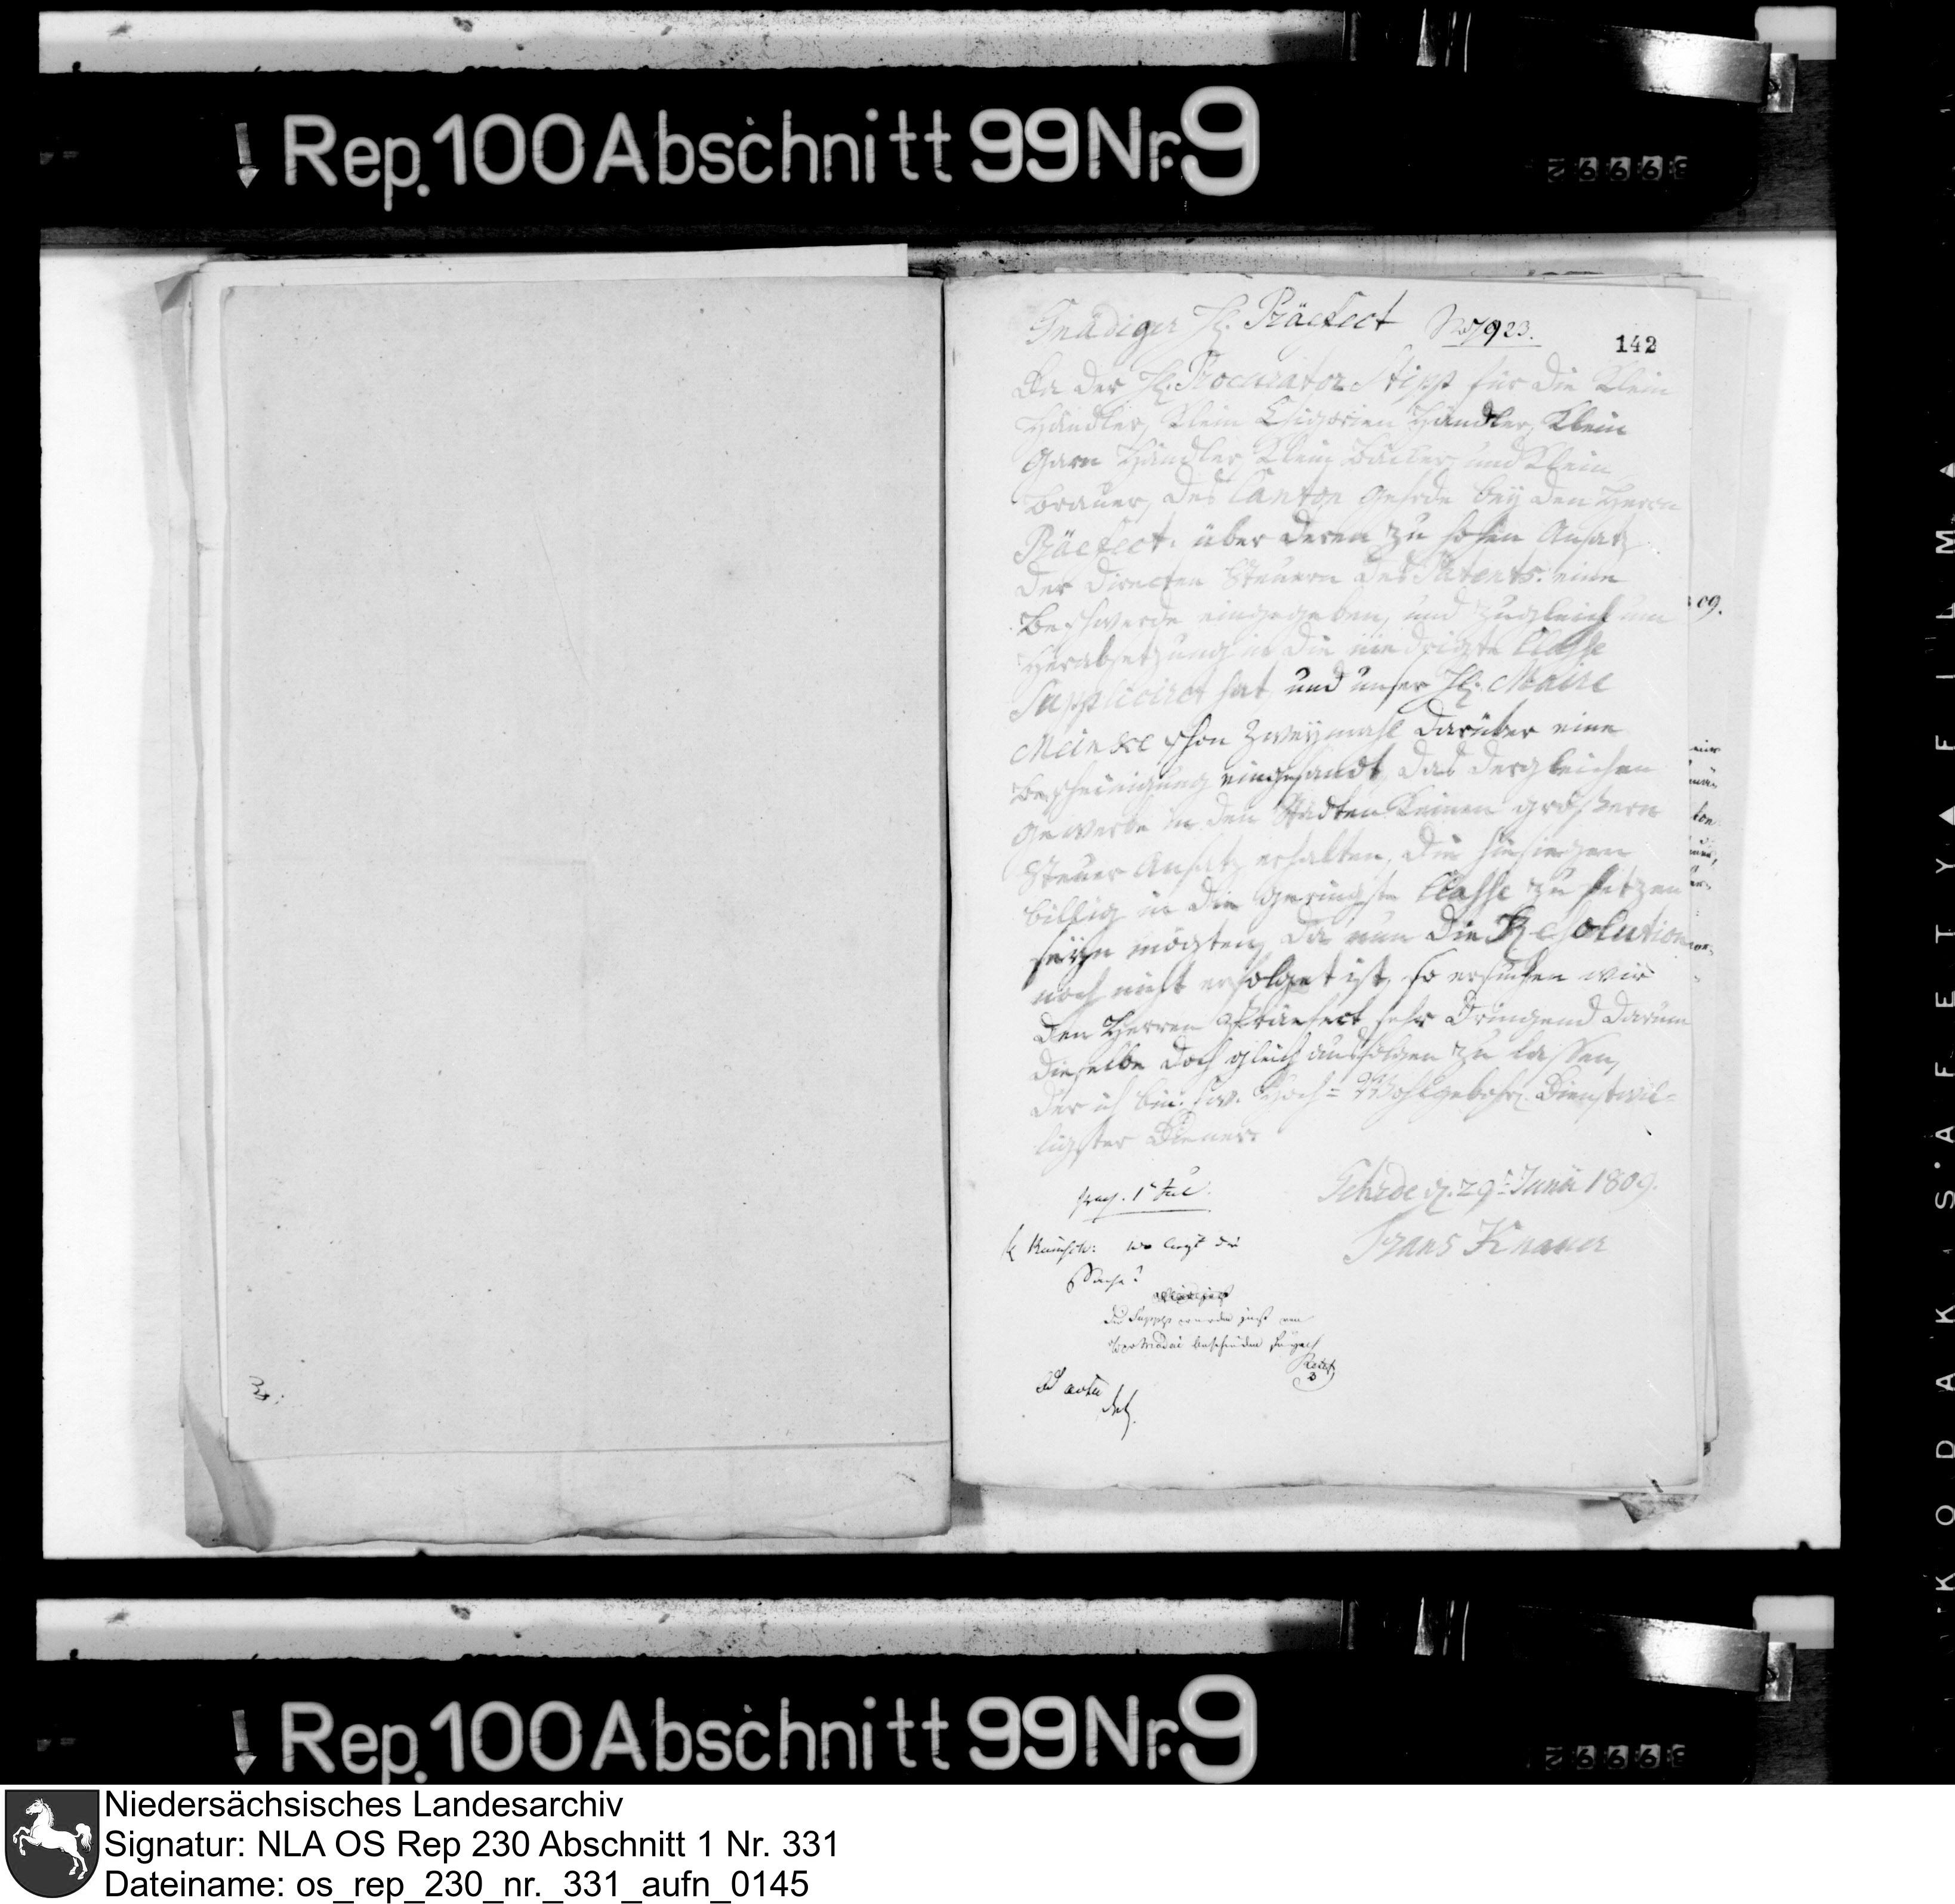 Rep. 100 Abschnitt 99 Nr. 9
Gnädiger H. Präefect No 7923.
142
Da der H. Procurator Stipp für die Klein
Händler, Klein Chigorien Händler, Klein
Garn Händler, Klein Bäcker, und Klein
Brauer, des Canton Gehrde bey den Herrn
Präefect. über deren zu hohen Ansatz
der directen Steuern des Patents. eine
Beschwerde eingegeben, und zugleich um
Herabsetzung in die niedrigste Classe
Suppliciret hat, und unser H. Maire
Meincke schon zweymahl darüber eine
Bescheinigung eingesandt, das dergleichen
Gewerbe in den Städten keinen größern
Steuer Ansatz erhalten, die hiesigen
billig in die geringste Classe zu setzen
seyn mögten, da nun die Resolution
noch nicht erfolget ist, so ersuchen wir
den Herren Präefect sehr dringend darum
dieselbe doch gleich ausfolgen zu lassen,
der ich bin. Ew. Hoch= Wohlgebohr. Dienstwil=
ligster Diener
Gehrde d. 29t Junii 1809.
Frans Knauer
praes. 1t Jul.
wo liegt die
Sache?
Ad acta
09.
KODAK SAFETY FILM
Rep. 100 Abschnitt 99 Nr. 9
Niedersächsisches Landesarchiv
Signatur: NLA OS Rep 230 Abschnitt 1 Nr. 331
Dateiname: os_rep_230_nr._331_aufn_0145